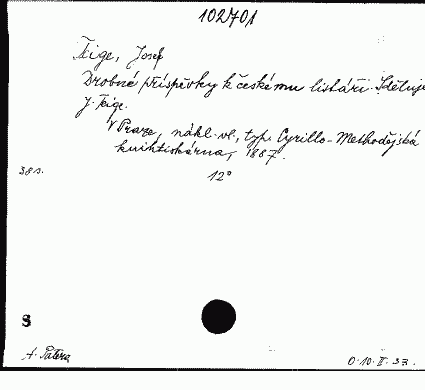 102701
Teige, Josef
Drobné příspěvky k českému listáři. Sděluje
J. Teige.
V Praze, nákl. vl., typ. Cyrillo-Methodějská
knihtiskárna, 1887.
38 s.
12°
S
A. Patera
0.10.II.37.